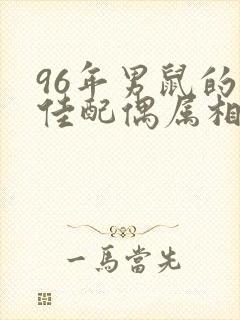 96年男鼠的
佳配偶属相
一馬當先